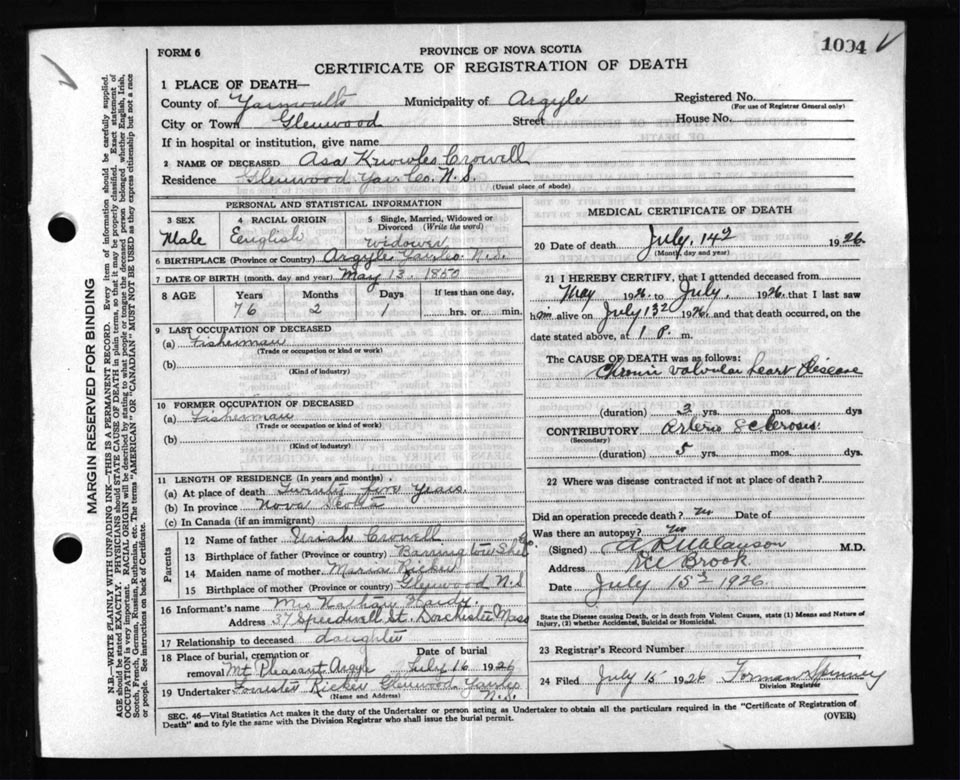 1004 ✓
FORM 6
PROVINCE OF NOVA SCOTIA
CERTIFICATE OF REGISTRATION OF DEATH
MARGIN RESERVED FOR BINDING
N.B.—WRITE PLAINLY WITH UNFADING INK—THIS IS A PERMANENT RECORD. Every item of information should be carefully supplied.
AGE should be stated EXACTLY. PHYSICIANS should STATE CAUSE OF DEATH in plain terms, so that it may be properly classified. Exact statement of
OCCUPATION is very important. RACIAL ORIGIN will be described by stating to what people or tongue the deceased person belonged whether English, Irish,
Scotch, French, German, Russian, Ruthenian, etc. The terms "AMERICAN" OR "CANADIAN" MUST NOT BE USED as they express citizenship but not a race
or people. See instructions on back of Certificate.
1 PLACE OF DEATH—
County of Yarmouth Municipality of Argyle Registered No.
(For use of Registrar General only)
City or Town Glenwood Street House No.
If in hospital or institution, give name
2 NAME OF DECEASED Asa Knowles Crowell
Residence Glenwood Yar. Co. N.S.
(Usual place of abode)
PERSONAL AND STATISTICAL INFORMATION
3 SEX 4 RACIAL ORIGIN 5 Single, Married, Widowed or
Divorced (Write the word)
Male English widower
6 BIRTHPLACE (Province or Country) Argyle Yar. Co. N.S.
7 DATE OF BIRTH (month, day, and year) May 13, 1850
8 AGE Years Months Days If less than one day,
76 2 1 hrs. or min.
9 LAST OCCUPATION OF DECEASED
(a) Fisherman
(Trade or occupation or kind or work)
(b)
(Kind of industry)
10 FORMER OCCUPATION OF DECEASED
(a) Fisherman
(Trade or occupation or kind or work)
(b)
(Kind of industry)
11 LENGTH OF RESIDENCE (In years and months)
(a) At place of death Twenty five Years
(b) In province Nova Scotia
(c) In Canada (if an immigrant)
Parents
12 Name of father Crowell
13 Birthplace of father (Province or country) Barrington Shel Co.
14 Maiden name of mother Maria Ricker
15 Birthplace of mother (Province or country) Glenwood N.S
16 Informant's name Mrs Nathan Hardy
Address 37 Speedwell St. Dorchester Mass
17 Relationship to deceased daughter
18 Place of burial, cremation or Date of burial
removal Mt Pleasant Argyle July 16 1926
19 Undertaker Forrister Ricker Glenwood Yar. Co.
(Name and Address) N.S.
MEDICAL CERTIFICATE OF DEATH
20 Date of death July, 14th 1926.
(Month, day and year)
21 I HEREBY CERTIFY, that I attended deceased from
May 1926 to July, 1926, that I last saw
him alive on July 13th 1926, and that death occurred, on the
date stated above, at 1 P. m.
The CAUSE OF DEATH was as follows:
Chronic valvular heart Disease
(duration) 3 yrs. mos. dys
CONTRIBUTORY Arterio Sclerosis
(Secondary)
(duration) 5 yrs. mos. dys
22 Where was disease contracted if not at place of death?
Did an operation precede death? No Date of
Was there an autopsy? No
(Signed) M.D.
Address Brook
Date July 15th 1926
State the Disease causing Death, or in death from Violent Causes, state (1) Means and Nature of
Injury, (2) whether Accidental, Suicidal or Homicidal.
23 Registrar's Record Number
24 Filed July 15 1926 Forman Spinney
Division Registrar
SEC. 46—Vital Statistics Act makes it the duty of the Undertaker or person acting as Undertaker to obtain all the particulars required in the "Certificate of Registration of
Death" and to fyle the same with the Division Registrar who shall issue the burial permit. (OVER)